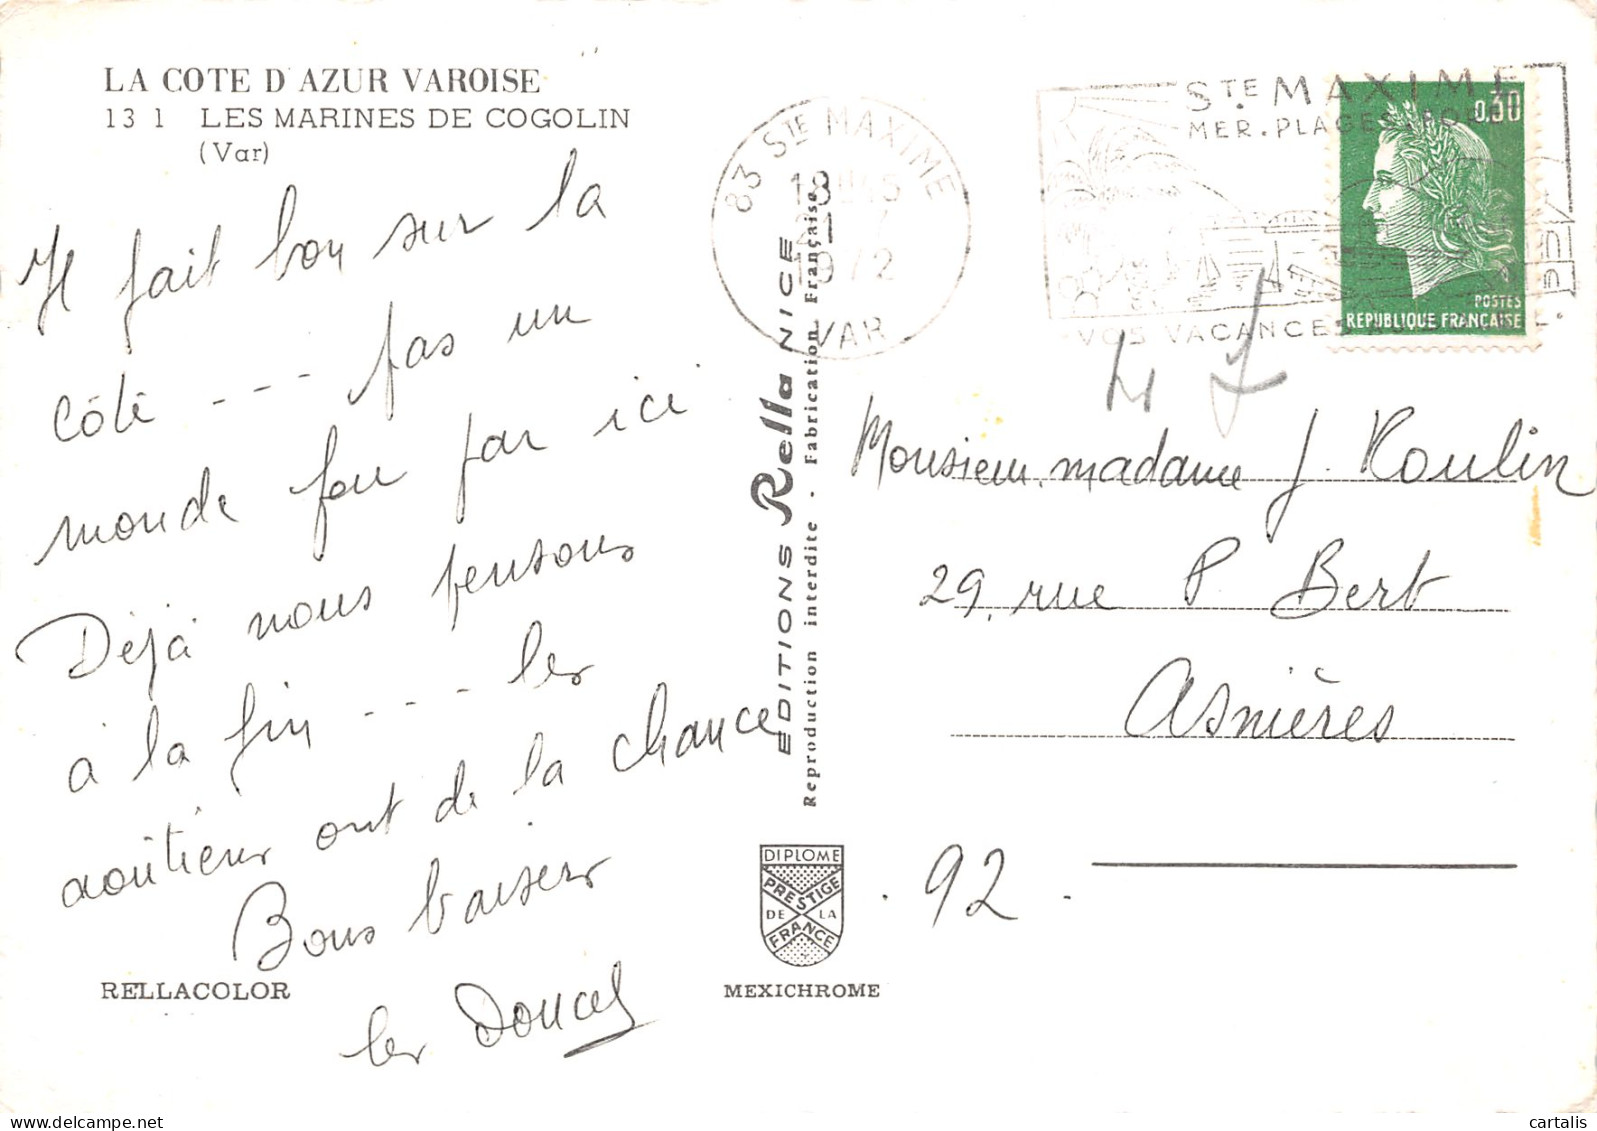 LA COTE D'AZUR VAROISE
13 1 LES MARINES DE COGOLIN
(Var)
Il fait bon sur la
côte --- pas un
monde fou par ici
Déjà nous pensons
à la fin --- les
aoûtiens ont de la chance
Bons baisers
les Doucet
RELLACOLOR
EDITIONS Rella NICE
Reproduction interdite - Fabrication Française
DIPLOME
PRESTIGE
DE LA
FRANCE
MEXICHROME
83 STE MAXIME
18H45
21
1972
VAR
STE MAXIME
MER. PLAGES.
VOS VACANCES
0,30
POSTES
REPUBLIQUE FRANÇAISE
Monsieur. madame J. Koulin
29, rue P. Bert
Asnières
. 92 .
cartalis